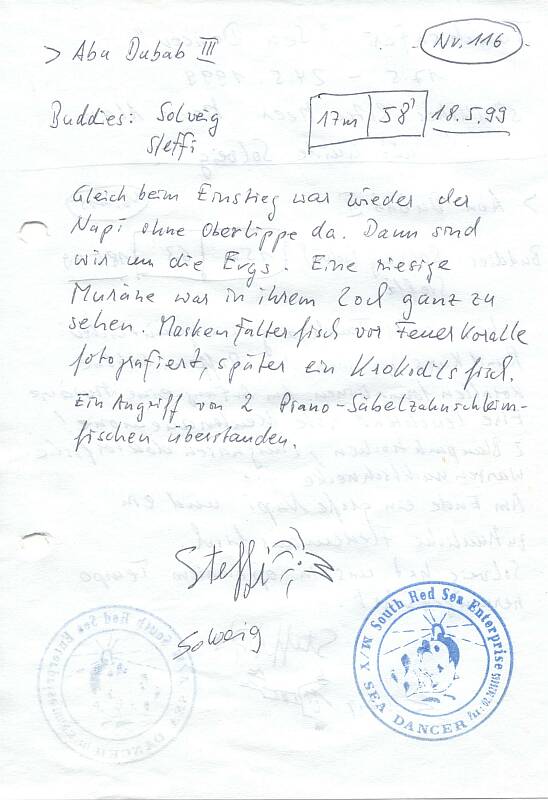 > Abu Dabab III
Nr. 116
Buddies: Solveig
Steffi
17m 58' 18.5.99
Gleich beim Einstieg war wieder der
Napi ohne Oberlippe da. Dann sind
wir um die Ergs. Eine riesige
Muräne war in ihrem Loch ganz zu
sehen. Maskenfalterfisch vor Feuerkoralle
fotografiert, später ein Krokodilsfisch.
Ein Angriff von 2 Piano-Säbelzahnschleim-
fischen überstanden.
Steffi
Solveig
South Red Sea Enterprise
M/Y SEA DANCER